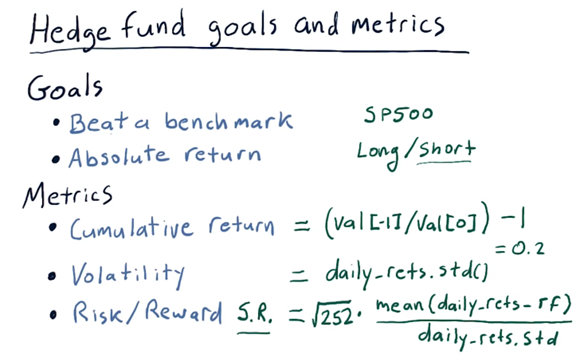 Hedge fund goals and metrics
Goals
• Beat a benchmark SP500
• Absolute return Long/Short
Metrics
• Cumulative return = (Val[-1]/Val[0]) -1
= 0.2
• Volatility = daily_rets.std()
• Risk/Reward S.R. = √252 · mean(daily_rets - rf)
daily_rets.std